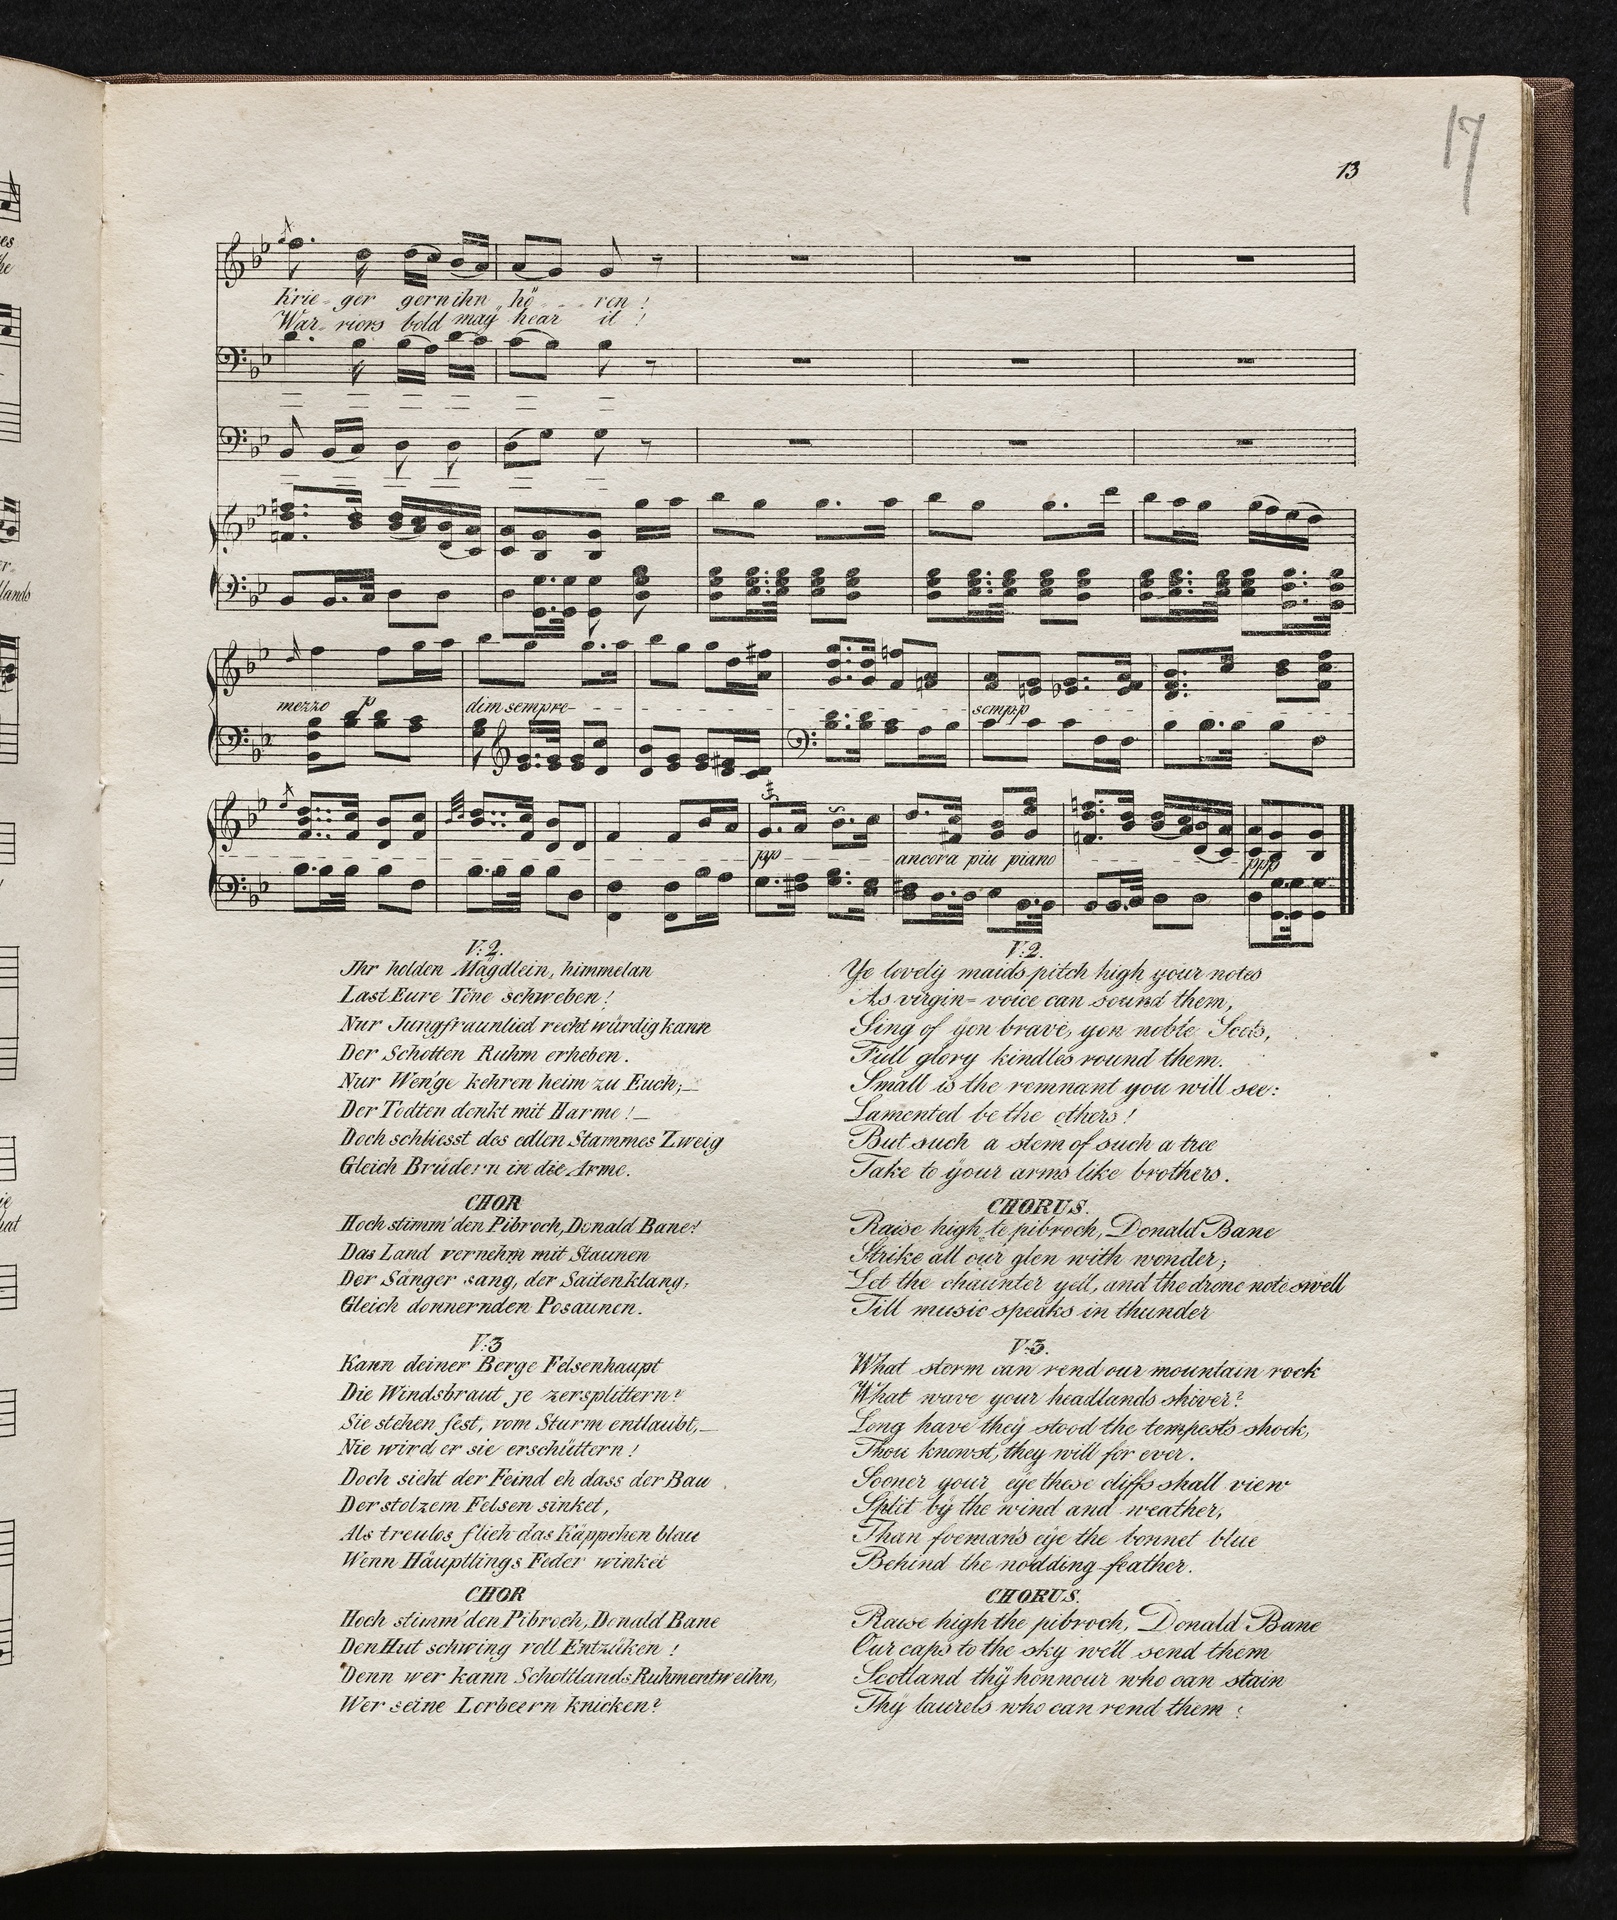 17
13
Krie - ger gern ihn hö - - - ren !
War - riors bold may hear it !
mezzo p dim sempre sempp
pp ancora piu piano ppp
V: 2.
Ihr holden Mägdlein, himmelan
Last Eure Töne schweben !
Nur Jungfraunlied recht würdig kann
Der Schotten Ruhm erheben .
Nur Wen'ge kehren heim zu Euch ;_
Der Todten denkt mit Harme !_
Doch schliesst des edlen Stammes Zweig
Gleich Brüdern in die Arme .
CHOR
Hoch stimm' den Pibroch, Donald Bane !
Das Land vernehm mit Staunen
Der Sänger sang, der Saiten klang,
Gleich donnernden Posaunen .
V: 3
Kann deiner Berge Felsenhaupt
Die Windsbraut je zersplittern ?
Sie stehen fest, vom Sturm entlaubt,_
Nie wird er sie erschüttern !
Doch sieht der Feind eh dass der Bau
Der stolzem Felsen sinket ,
Als treulos flieh das Käppchen blau
Wenn Häuptlings Feder winket
CHOR
Hoch stimm' den Pibroch, Donald Bane
Den Hut schwing voll Entzüken !
Denn wer kann Schottlands Ruhm entweihn,
Wer seine Lorbeern knicken ?
V: 2.
Ye lovely maids pitch high your notes
As virgin = voice can sound them,
Sing of yon brave, yon noble Scots,
Full glory kindles round them.
Small is the remnant you will see :
Lamented be the others !
But such a stem of such a tree
Take to your arms like brothers .
CHORUS.
Raise high te pibroch, Donald Bane
Strike all our glen with wonder ;
Let the chaunter yell, and the drone note swell
Till music speaks in thunder
V: 3.
What storm can rend our mountain rock
What wave your headlands shiver ?
Long have they stood the tempest's shock,
Thou knowst, they will for ever .
Sooner your eye these cliffs shall view
Split by the wind and weather,
Than foeman's eye the bonnet blue
Behind the nodding feather .
CHORUS.
Raise high the pibroch, Donald Bane
Our caps to the sky we'll send them
Scotland thy honnour who can stain
Thy laurels who can rend them ?